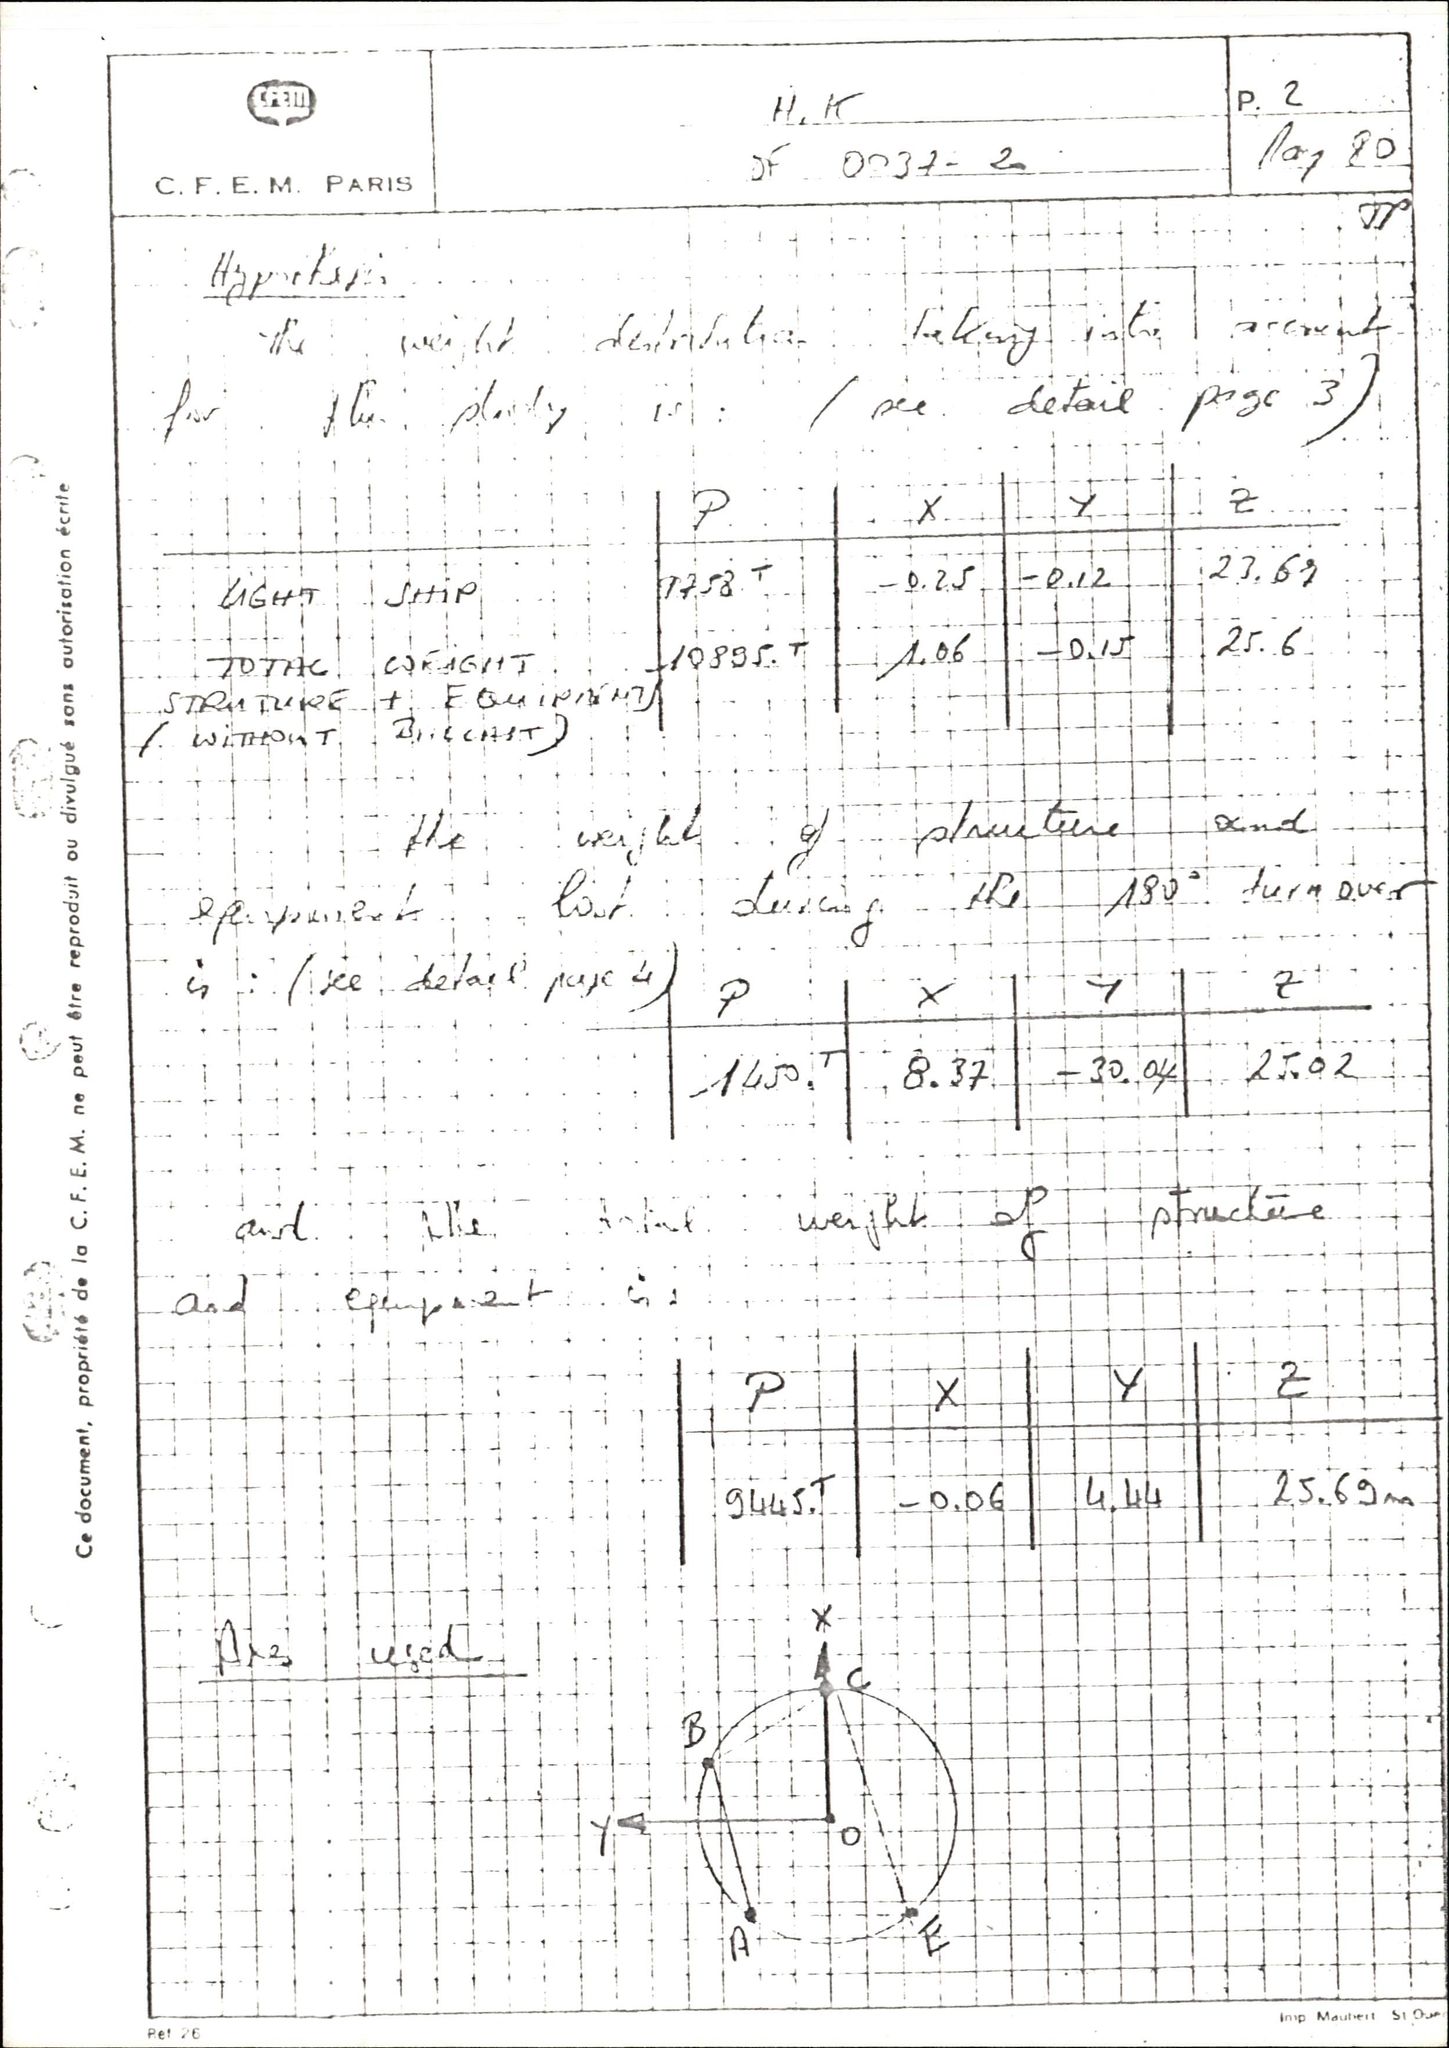 CFEM
C. F. E. M. PARIS
H.K
DF 0037-2
P. 2
May 80
Hypothesis
The weight distribution taking into account
for the study is : (see detail page 3)
P X Y Z
LIGHT SHIP 9758 T -0.25 -0.12 23.69
TOTAL WEIGHT 10895.T 1.06 -0.15 25.6
STRUTURE + EQUIPMENTS
(WITHOUT BALLAST)
the weight of structure and
equipment lost during the 180° turn over
is : (see detail page 4)
P X Y Z
1450.T 8.37 -30.04 25.02
and the total weight of structure
and equipment is:
P X Y Z
9445.T -0.06 4.44 25.69m
Axes used
X
C
B
Y
O
A
E
Ce document, propriété de la C. F. E. M. ne peut être reproduit ou divulgué sans autorisation écrite
Ref 26
Imp Maubert St Ouen